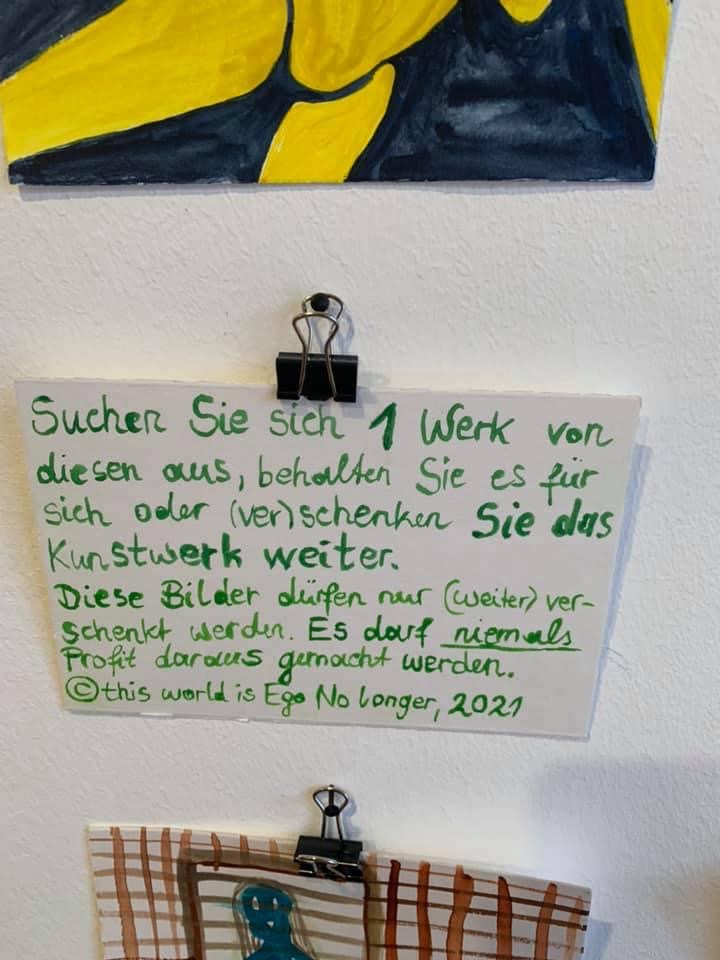 Suchen Sie sich 1 Werk von
diesen aus, behalten Sie es für
sich oder (ver)schenken Sie das
Kunstwerk weiter.
Diese Bilder dürfen nur (weiter) ver-
schenkt werden. Es darf niemals
Profit daraus gemacht werden.
©this world is Ego No longer, 2021